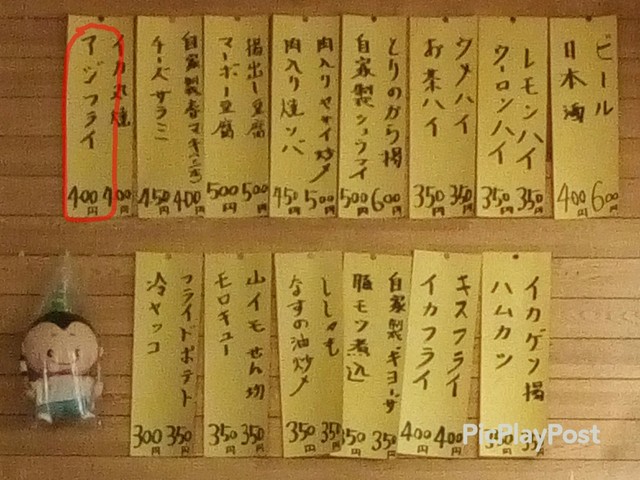 ビール 600円
日本酒 400円
レモンハイ 350円
ウーロンハイ 350円
ウメハイ 350円
お茶ハイ 350円
とりのから揚 600円
自家製シュウマイ 500円
肉入りヤサイ炒メ 500円
肉入り焼ソバ 450円
揚出し豆腐 500円
マーボー豆腐 500円
自家製春マキ 400円
チーズサラミ 450円
イカ丸焼 400円
アジフライ 400円
イカゲソ揚 35
ハムカツ 350円
キスフライ 400円
イカフライ 400円
自家製ギョーザ 350円
豚モツ煮込 350円
ししゃも 350
なすの油炒メ 350円
山イモせん切 350円
モロキュー 350円
フライドポテト 350円
冷ヤッコ 300円
PicPlayPost